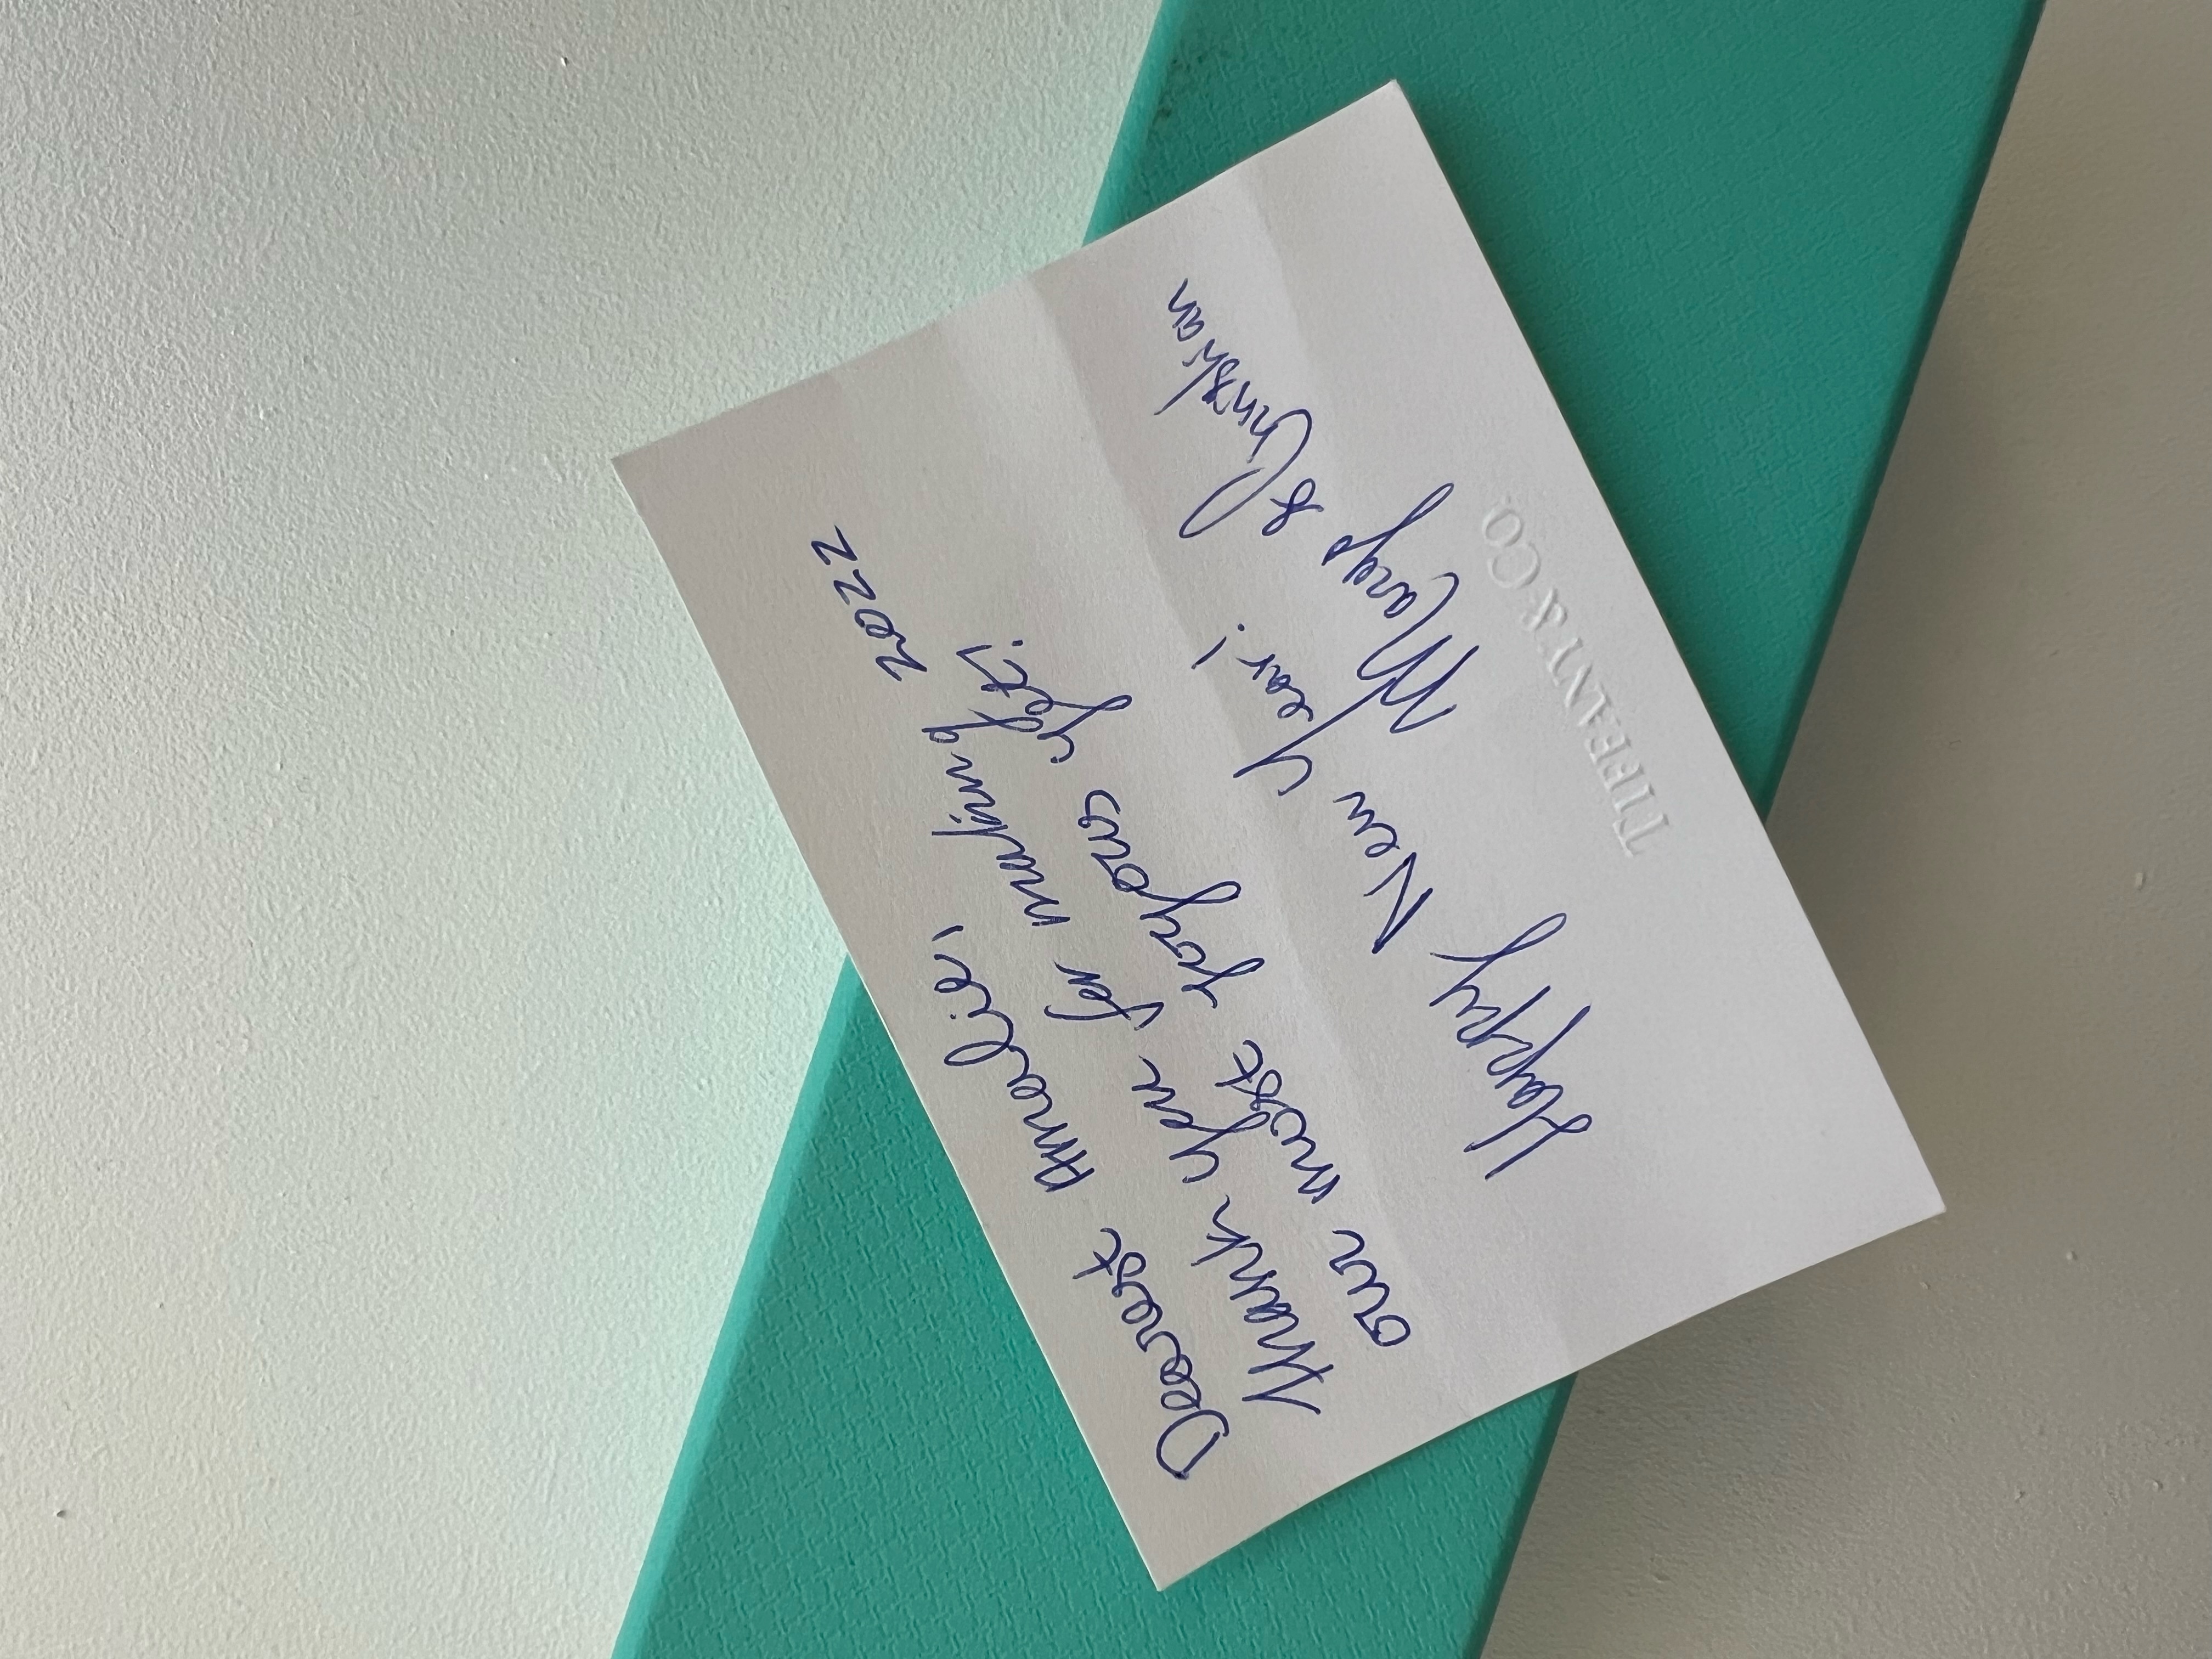 Dearest Amalie,
thank you for making 2022
our most joyous yet!
Happy New Year!
Mary & Christian
TIFFANY & CO.